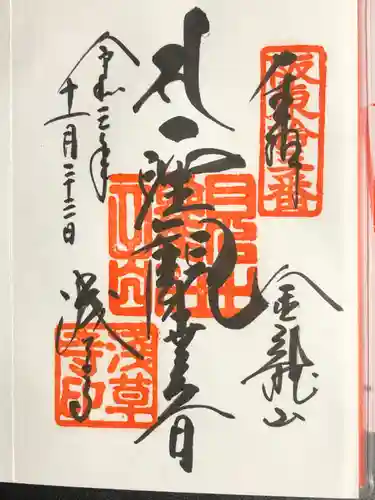 奉拝
坂東拾三番
金龍山
聖観世音
浅草寺
浅草寺印
令和元年
十一月二十二日